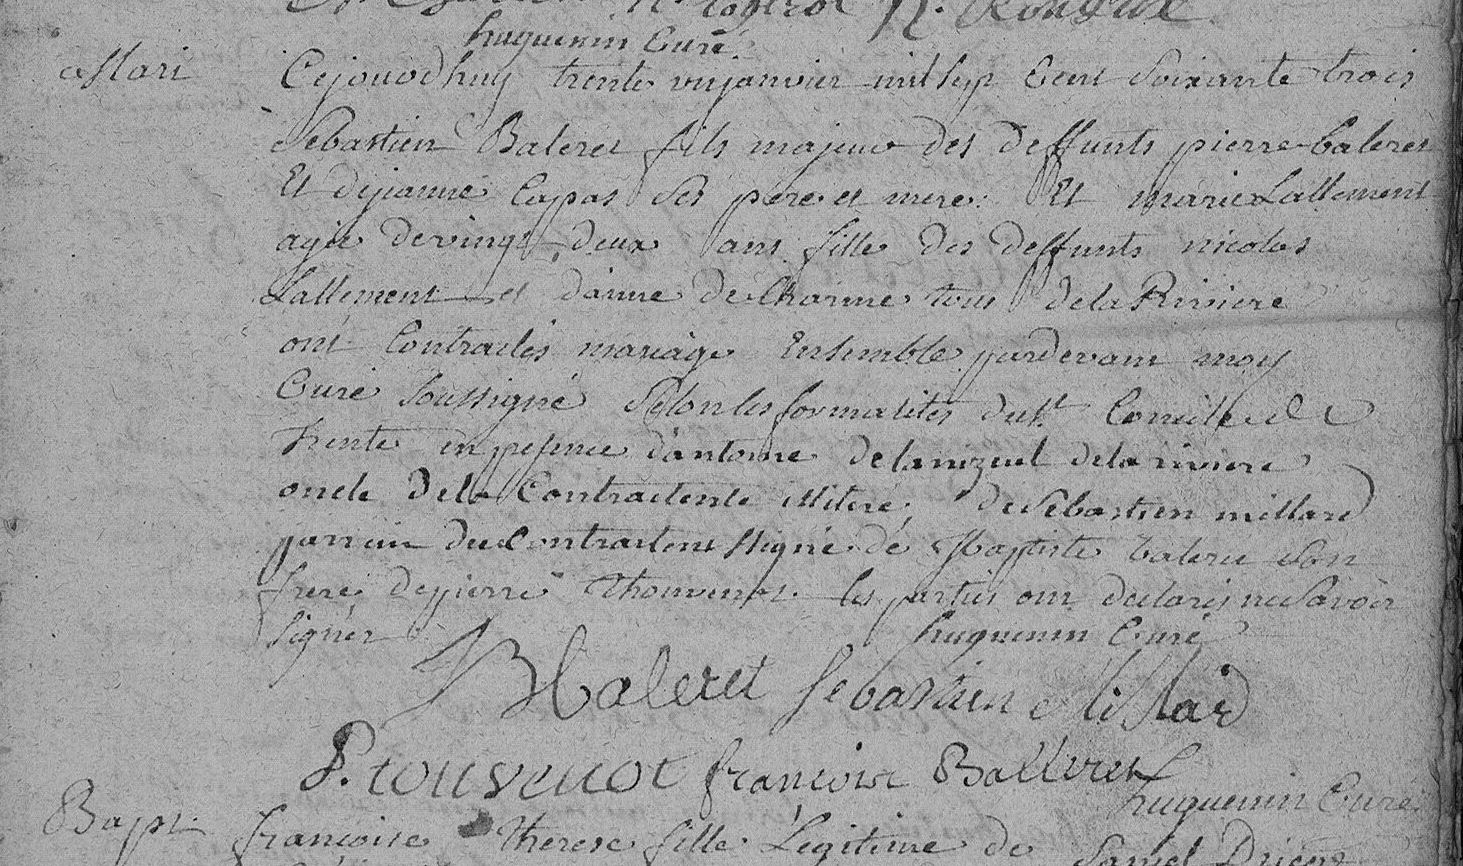 huguenin Curé
Mari
Cejourdhuy trente un janvier mil sep Cent soixante trois
Sebastien Baleret fils majeur des deffunts pierre baleret
Et dejeanne Capas ses pere et mere. Et marie Lallement
agée devingt deux ans fille des deffunts nicolas
Lallement et d'anne de Charme tous dela Riviere
ont Contractés mariage Ensemble pardevant moy
Curé Soussigné Selon les formalites du st. Concile de
trente en presence d'antoine delamizeul dela riviere
oncle dela Contractente illiteré, de Sebastien millard
parrain du Contractent signé de J baptiste baleret son
frere depierre thouvenot. les parties ont declarés ne Savoir
signer
huguenin Curé
JB baleret Sebastien Millard
P. touvenot francoise Balleret
huguenin Curé
Bapt. francoise therese fille Legitime de